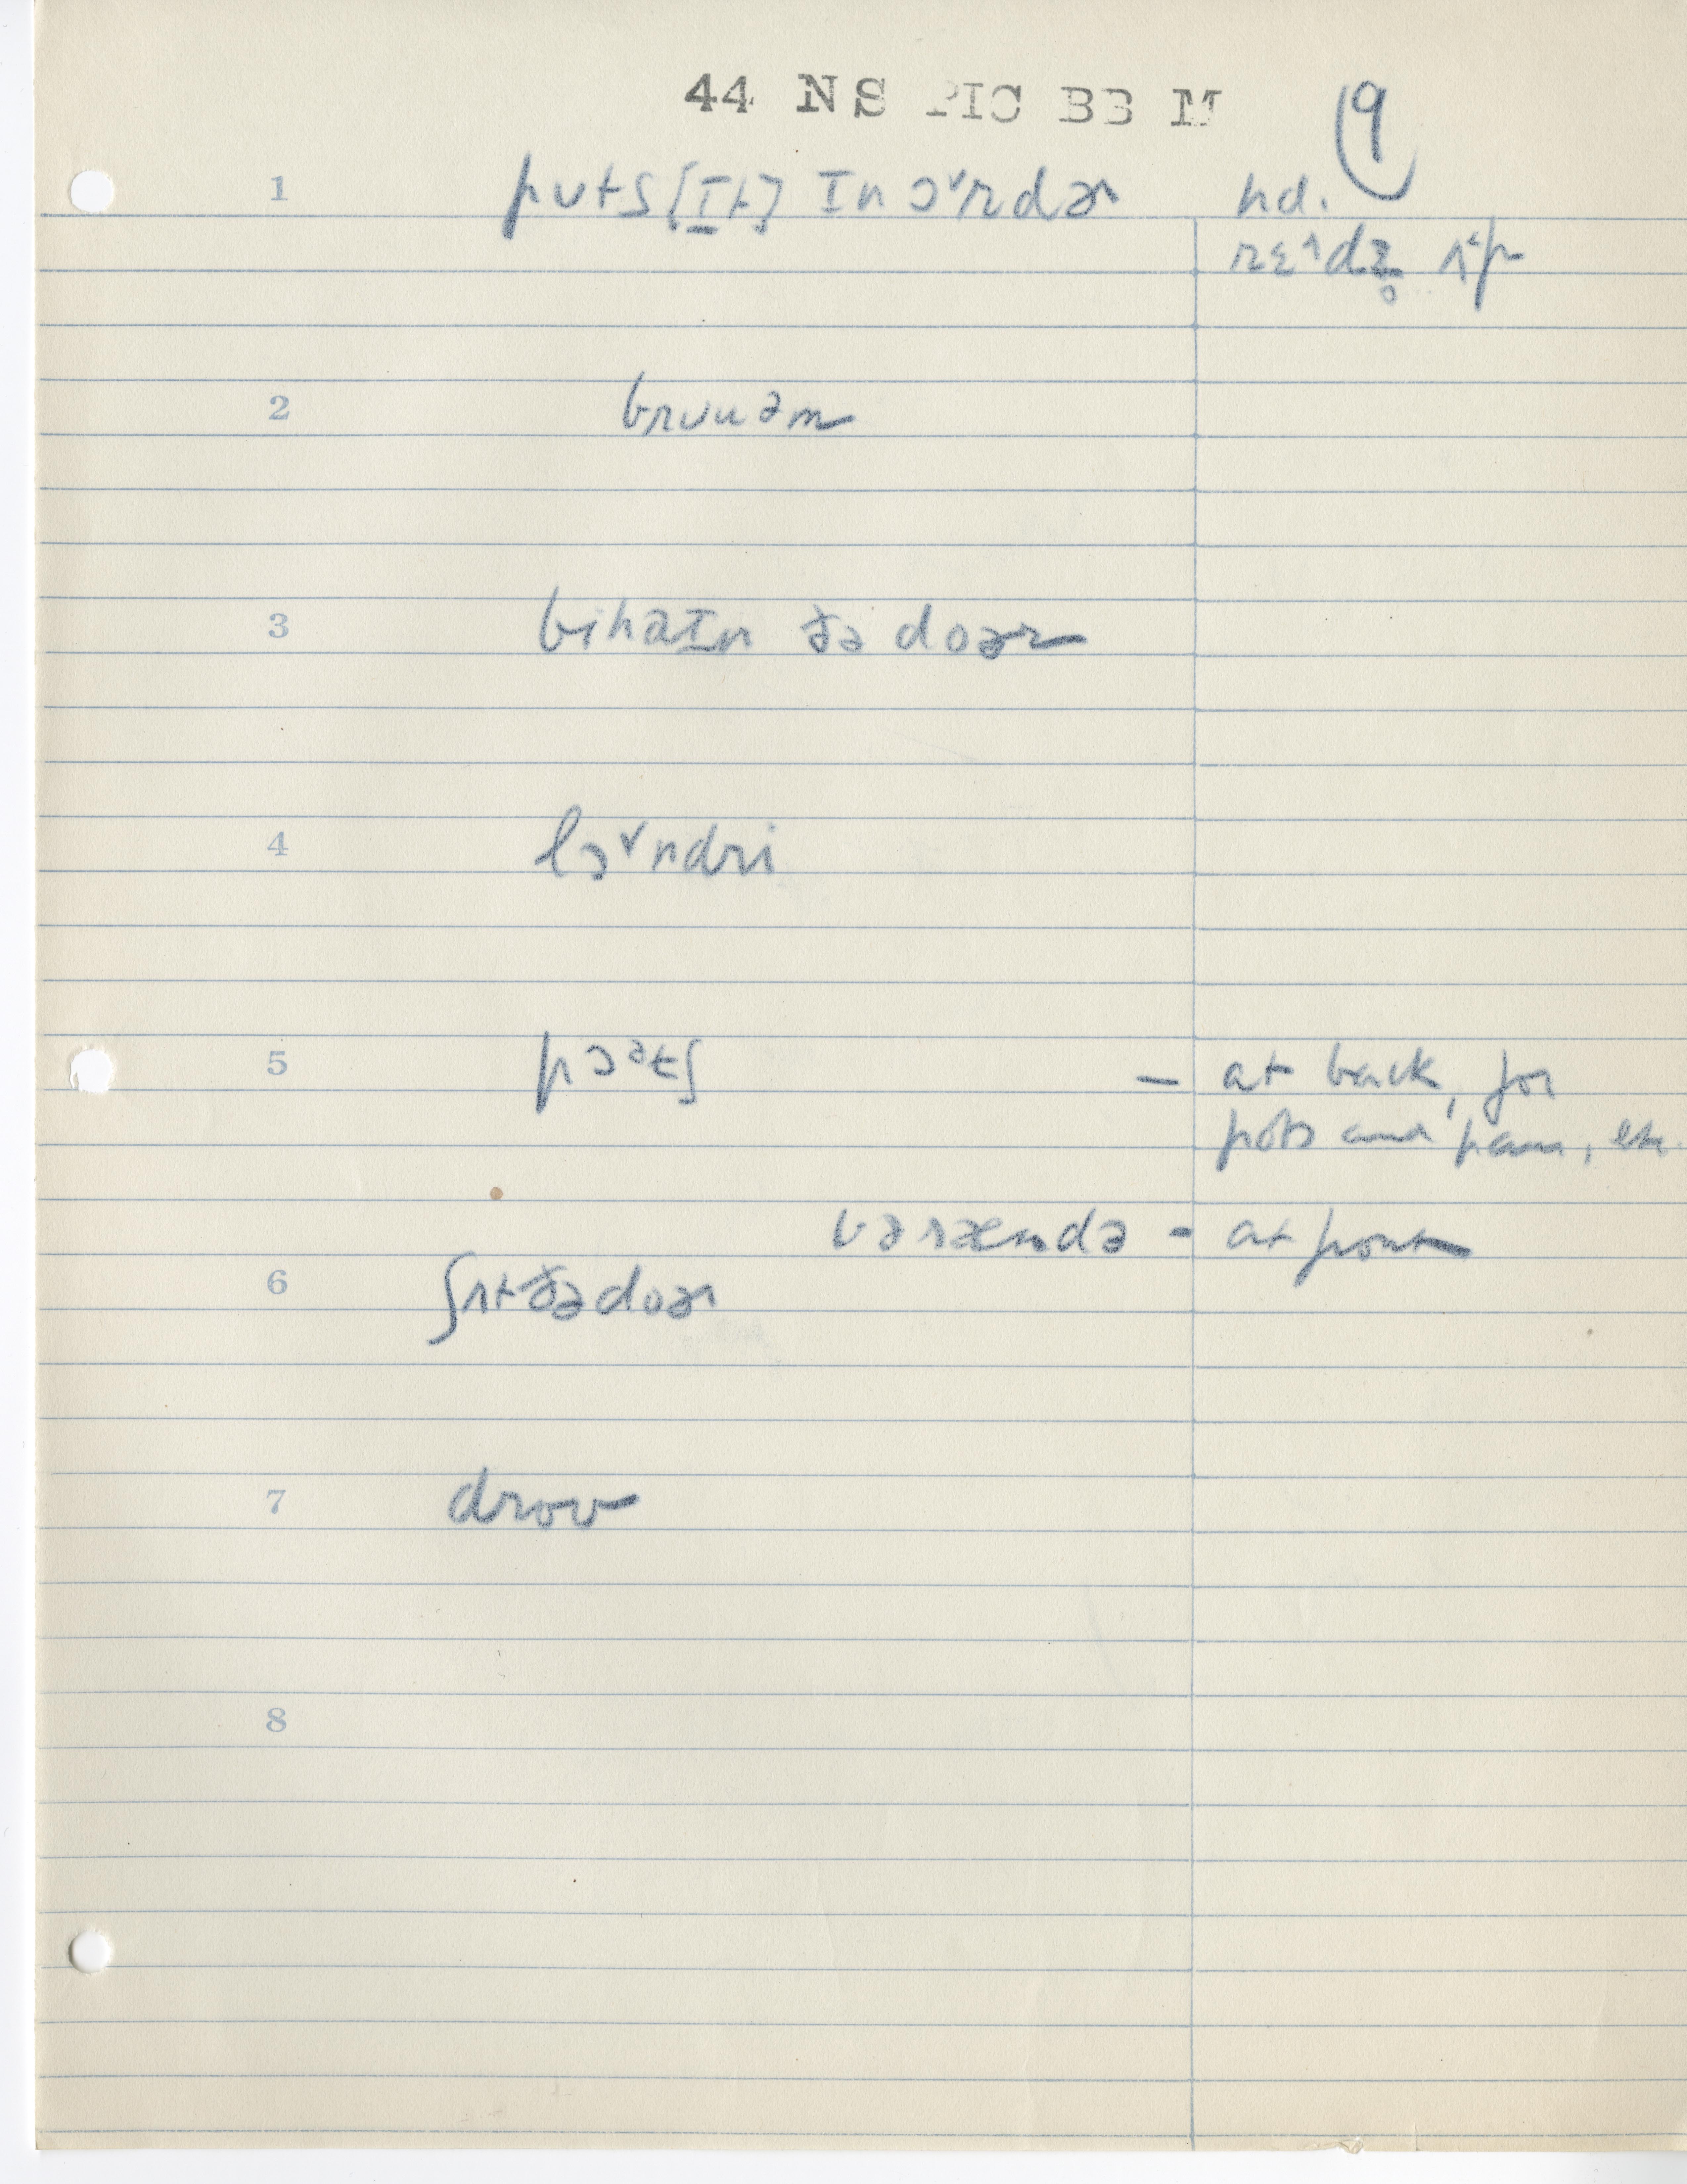 44 NS PIC BB M 9
1 pʊts [ɪt] ɪn ɔ˅rdɚ hd.
rɛ˄dz̥ ʌ˂p
2 brʊuəm
3 bihaɪn ðə doɚr
4 lɔ˅ndri
5 pɔᵊtʃ — at back, for
pots and pans, etc.
vərændə - at front
6 ʃʌt ðə doɚ
7 droʊ
8